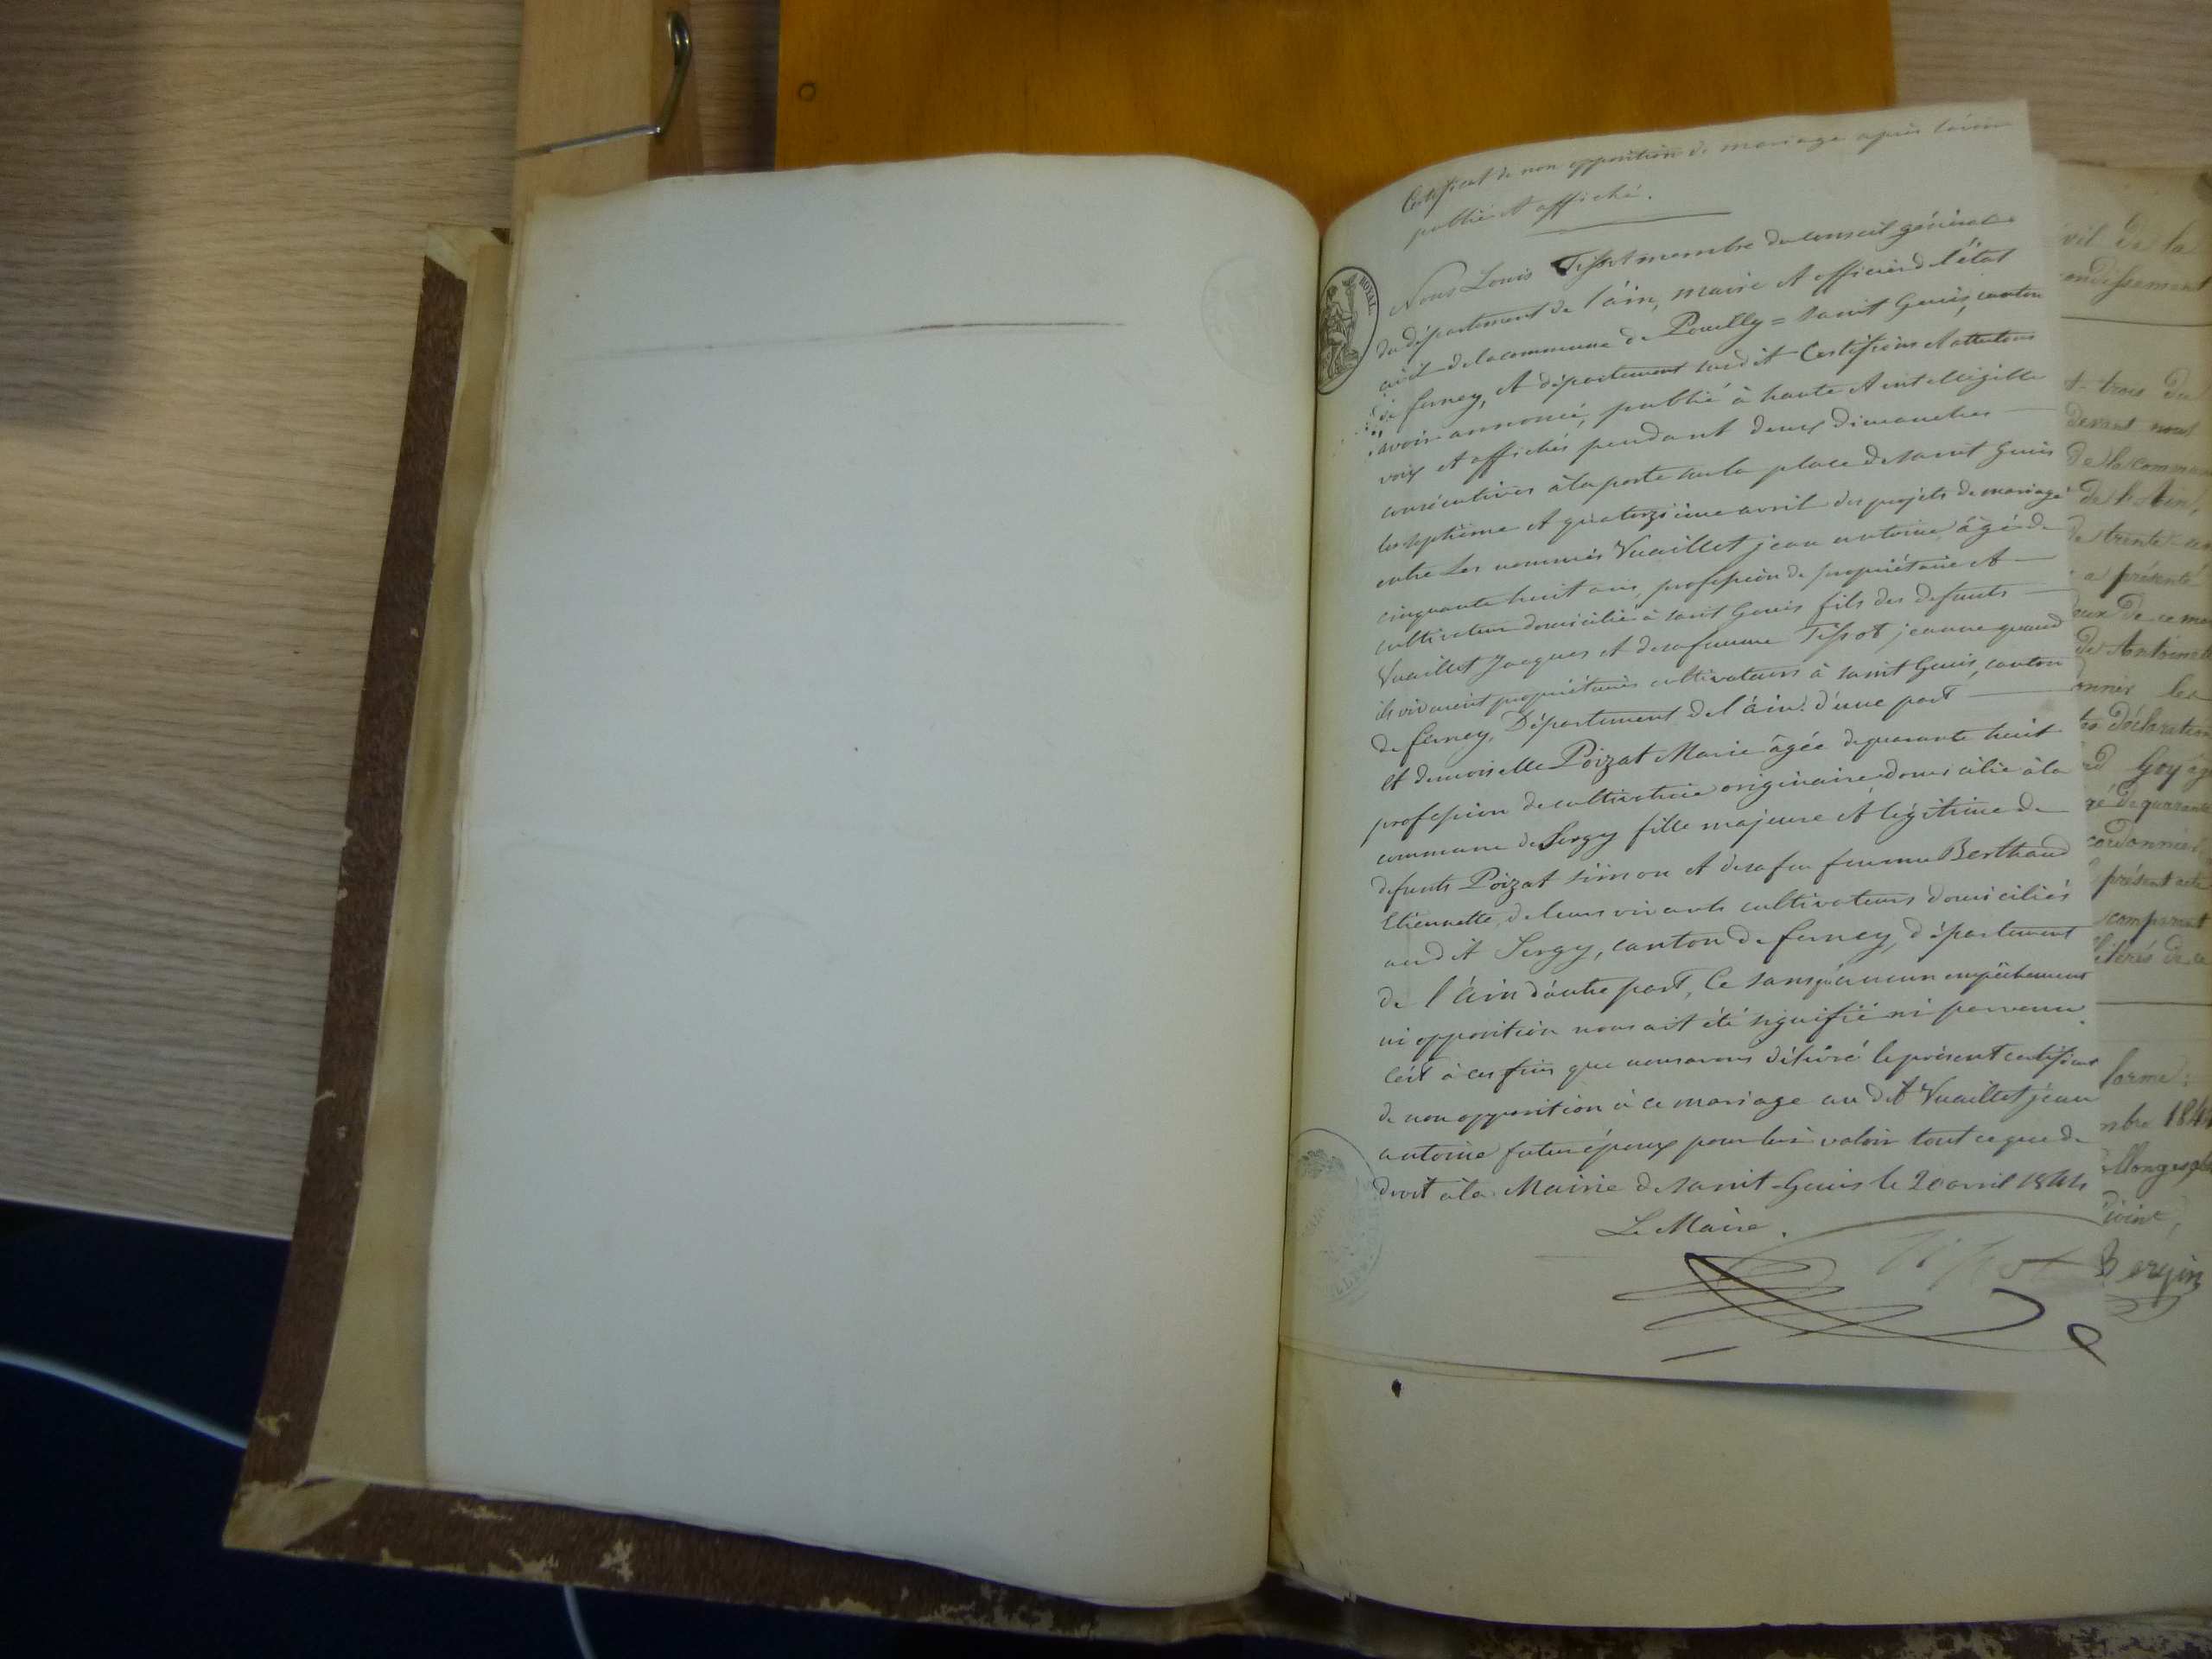 Certificat de non opposition de mariage après l'avoir
publié et affiché.
ROYAL
Nous Louis Tissot membre du conseil général
du département de l'ain, maire et officier de l'état
civil de la commune de Pouilly = saint Genis, canton
de ferney, et département susdit Certifions et attestons
avoir annoncé, publié à haute et intelligible
voix et affichés pendant deux dimanches
consécutives à la porte sur la place de saint Genis
les septième et quatorzième avril des projets de mariage
entre Les nommés Vuaillet jean antoine, âgé de
cinquante huit ans, profession de propriétaire et
cultivateur domicilié à saint Genis fils des defunts
Vuaillet Jacques et de sa femme Tissot jeanne quand
ils vivaient propriétaires cultivateurs à saint Genis, canton
de ferney, Département de l'ain. d'une part
et demoiselle Poizat Marie âgée de quarante huit
profession de cultivatrice originaire domicilié à la
commune de Sergy fille majeure et légitime de
defunts Poizat simon et de sa feu femme Berthaud
Etiennette, de leurs vivants cultivateurs domiciliés
au dit Sergy, canton de ferney, département
de l'ain d'autre part, Ce sans qu'aucun empêchement
ni opposition nous ait été signifié ni parvenu.
C'est à ces fins que nous avons délivré le présent certificat
de non opposition à ce mariage au dit Vuaillet jean
antoine futur époux pour lui valoir tout ce que de
droit à la Mairie de saint-Genis le 20 avril 1844
Le Maire.
Tissot
vil de la
endissement
t-trois du
devant nous
de la commune
de l'Ain,
de trente
a présenté
de Antoinette
onner les
tes déclaration
gé de quarante
cordonnier
présent acte
comparant
forme:
mbre 1844
Bergin